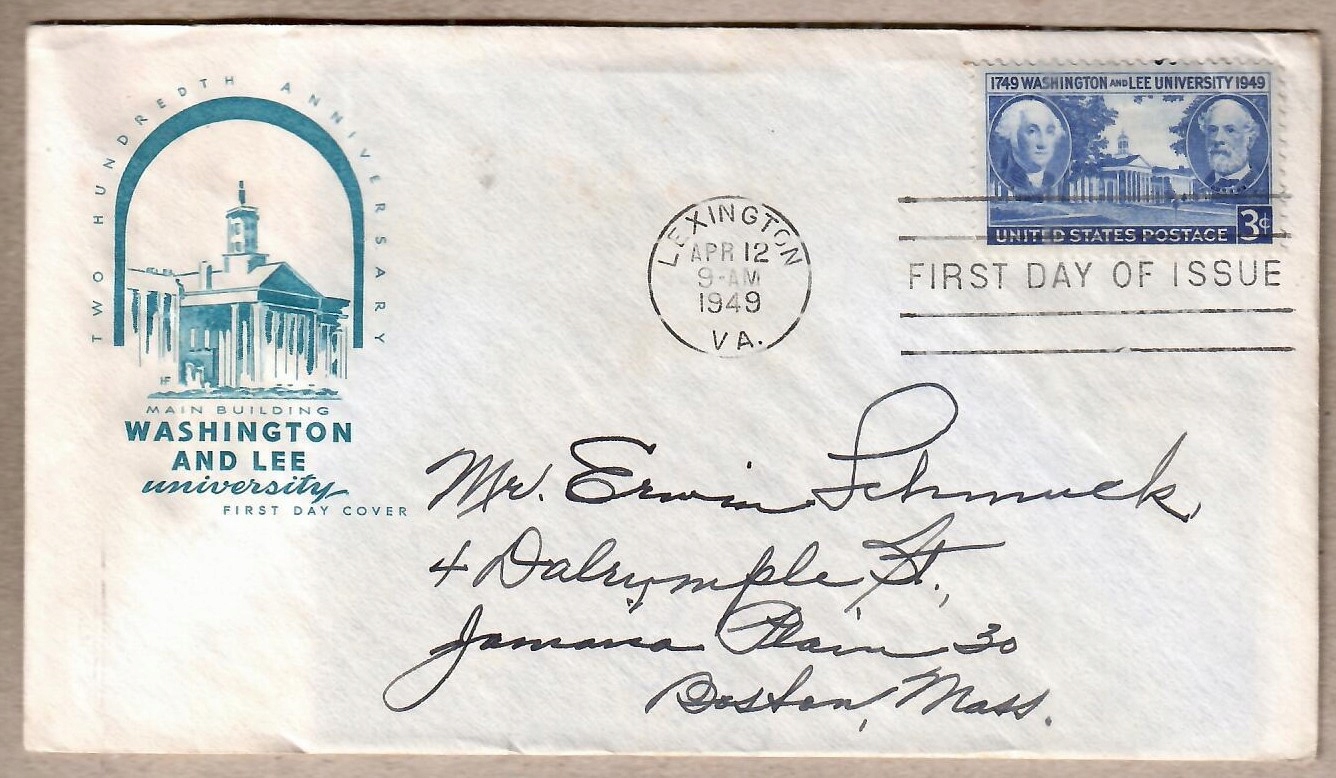 TWO HUNDREDTH ANNIVERSARY
HF
MAIN BUILDING
WASHINGTON
AND LEE
university
FIRST DAY COVER
LEXINGTON
APR 12
9-AM
1949
VA.
1749 WASHINGTON AND LEE UNIVERSITY 1949
UNITED STATES POSTAGE 3¢
FIRST DAY OF ISSUE
Mr. Erwin Schmuck,
4 Dalrymple St.,
Jamaica Plain 30
Boston, Mass.